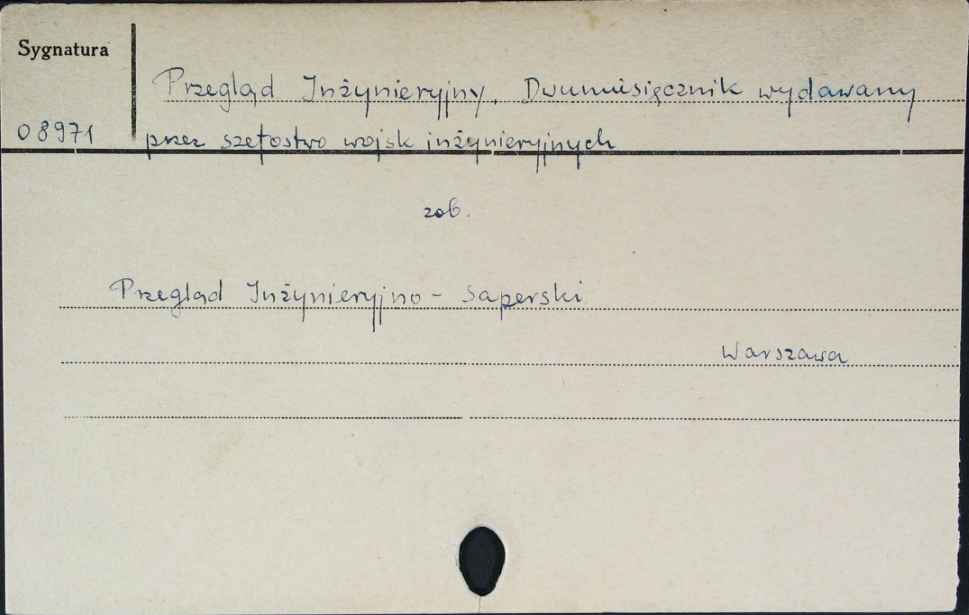 Sygnatura
Przegląd Inżynieryjny. Dwumiesięcznik wydawany
08971 przez szefostwo wojsk inżynieryjnych
zob.
Przegląd Inżynieryjno - Saperski
Warszawa